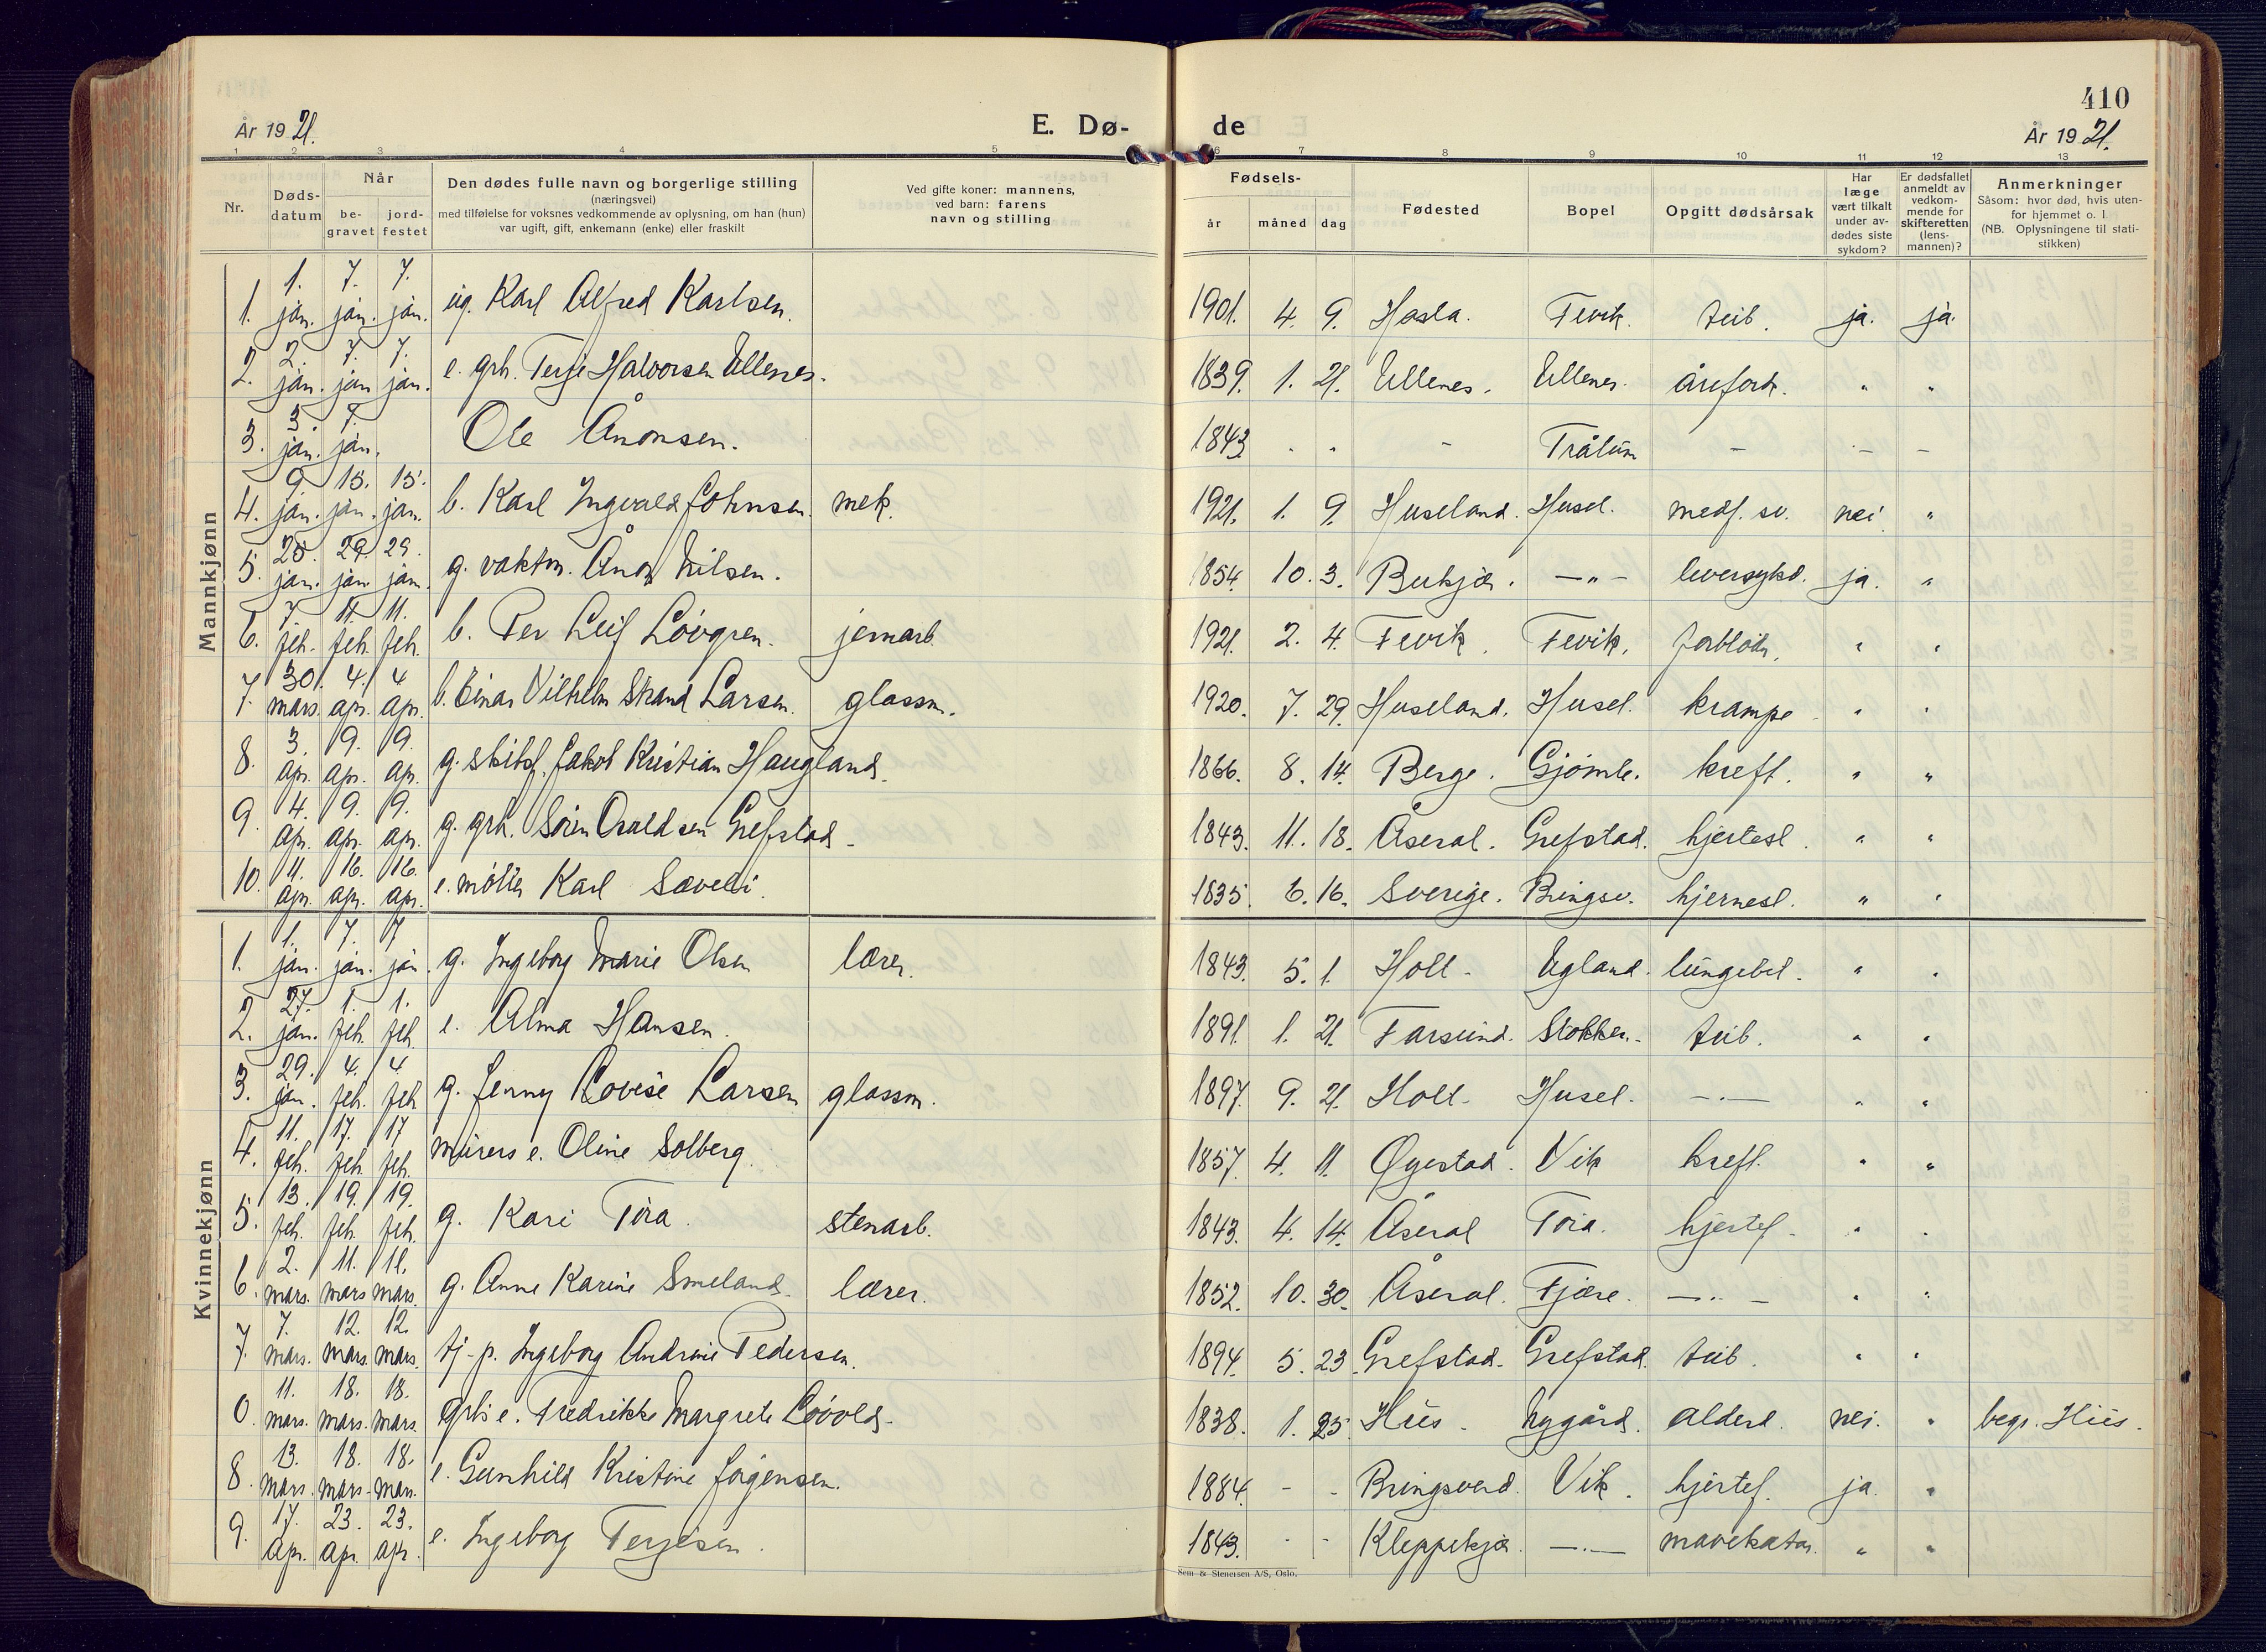 410
År 1921.
E. Dø-
de
År 1921.
1 2 3 4 5 6 7 8 9 10 11 12 13
Nr.
Døds-
datum
Når
be-
gravet
jord-
festet
Den dødes fulle navn og borgerlige stilling
(næringsvei)
med tilføielse for voksnes vedkommende av oplysning, om han (hun)
var ugift, gift, enkemann (enke) eller fraskilt
Ved gifte koner: mannens,
ved barn: farens
navn og stilling
Fødsels-
år måned dag
Fødested
Bopel
Opgitt dødsårsak
Har
læge
vært tilkalt
under av-
dødes siste
sykdom?
Er dødsfallet
anmeldt av
vedkom-
mende for
skifteretten
(lens-
mannen)?
Anmerkninger
Såsom: hvor død, hvis uten-
for hjemmet o. l
(NB. Oplysningene til stati-
stikken)
Mannkjønn
1. 1. jan. 7. jan. 7. jan. ug. Karl Alfred Karlsen. 1901. 4. 9. Hasla. Fevik. tub. ja. ja.
2. 2. jan. 7. jan 7. jan. e. grh. Terje Halvorsen Ullenes. 1839. 1. 21. Ullenes. Ullenes. åreford. " "
3. 3. jan. 7. jan. Ole Ånonsen. 1843 " " - Trålum - - -
4. 9 jan. 15. jan. 15. jan. b. Karl Ingvald Johnsen. mek. 1921. 1. 9. Huseland. Husel. medf. sv. nei "
5. 25. jan. 29. jan 29. jan. g. vaktm. Ånon Nilsen. 1854. 10. 3. Berkjær. -"- leversykd. ja. "
6. 7. feb. 11. feb. 11. feb. b. Per Leif Lövgren. jernarb. 1921. 2. 4. Fevik. Fevik. forblödn. " "
7. 30. mars. 4. apr. 4 apr. b. Einar Vilhelm Strand Larsen. glassm. 1920. 7. 29. Huseland. Husel. krampe " "
8. 3. apr. 9. apr. 9. ap. g. skibsf. Jakob Kristian Haugland. 1866. 8. 14. Berge. Gjömle. kreft. " "
9. 4. ap. 9. apr. 9. ap. g. grh. Sören Osuldsen Grefstad. 1843. 11. 18. Åseral. Grefstad. hjertesl. " "
10. 11. apr. 16. apr. 16. apr. e. möller Karl 1835. 6. 16. Sverige. Bringsv. hjernesl. " "
Kvinnekjønn
1. 1. jan. 7. jan. 7 jan. g. Ingeborg Marie Olsen lærer. 1843. 5. 1. Holt. Ugland. lungebet. " "
2. 27. jan. 1. feb. 1. feb. e. Alma Hansen. 1891. 1. 21. Farsund. Stokken. tub. " "
3. 29. jan. 4. feb. 4 feb g. Jenny Lovise Larsen glassm. 1897. 9. 21. Holt. Husel. -"- " "
4. 11. feb. 17. feb. 17 feb. murers e. Oline Solberg. 1857. 4. 11. Öyestad. Vik kreft. " "
5. 13. feb. 19. feb. 19. feb. g. Kari Tora. stenarb. 1843. 4. 14. Åseral Tora. hjertef. " "
6. 2. mars. 11. mars 11. mars. g. Anne Karine Smeland. lærer. 1852. 10. 30. Åseral. Fjære. -"- " "
7. 7. mars. 12. mars. 12. mars. tj. p. Ingeborg Andrine Pedersen. 1894. 5. 23. Grefstad. Grefstad. tub. " "
0. 11. mars. 18. mars. 18. mars grbs e. Fredrikke Margrete Lövold. 1838. 1. 25. Hiis. Nygård. alderd. nei. " begr. Hiis.
8. 13. mars. 18. mars. 18. mars. e. Gunhild Kristine Jörgensen. 1884. - - Bringsverd. Vik. hjertef. ja. "
9. 17. apr. 23. apr. 23. apr. e. Ingeborg Terjesen. 1843. " " Kleppekjær. -"- mavekatar. " "
Sem & Stenersen A/S, Oslo.